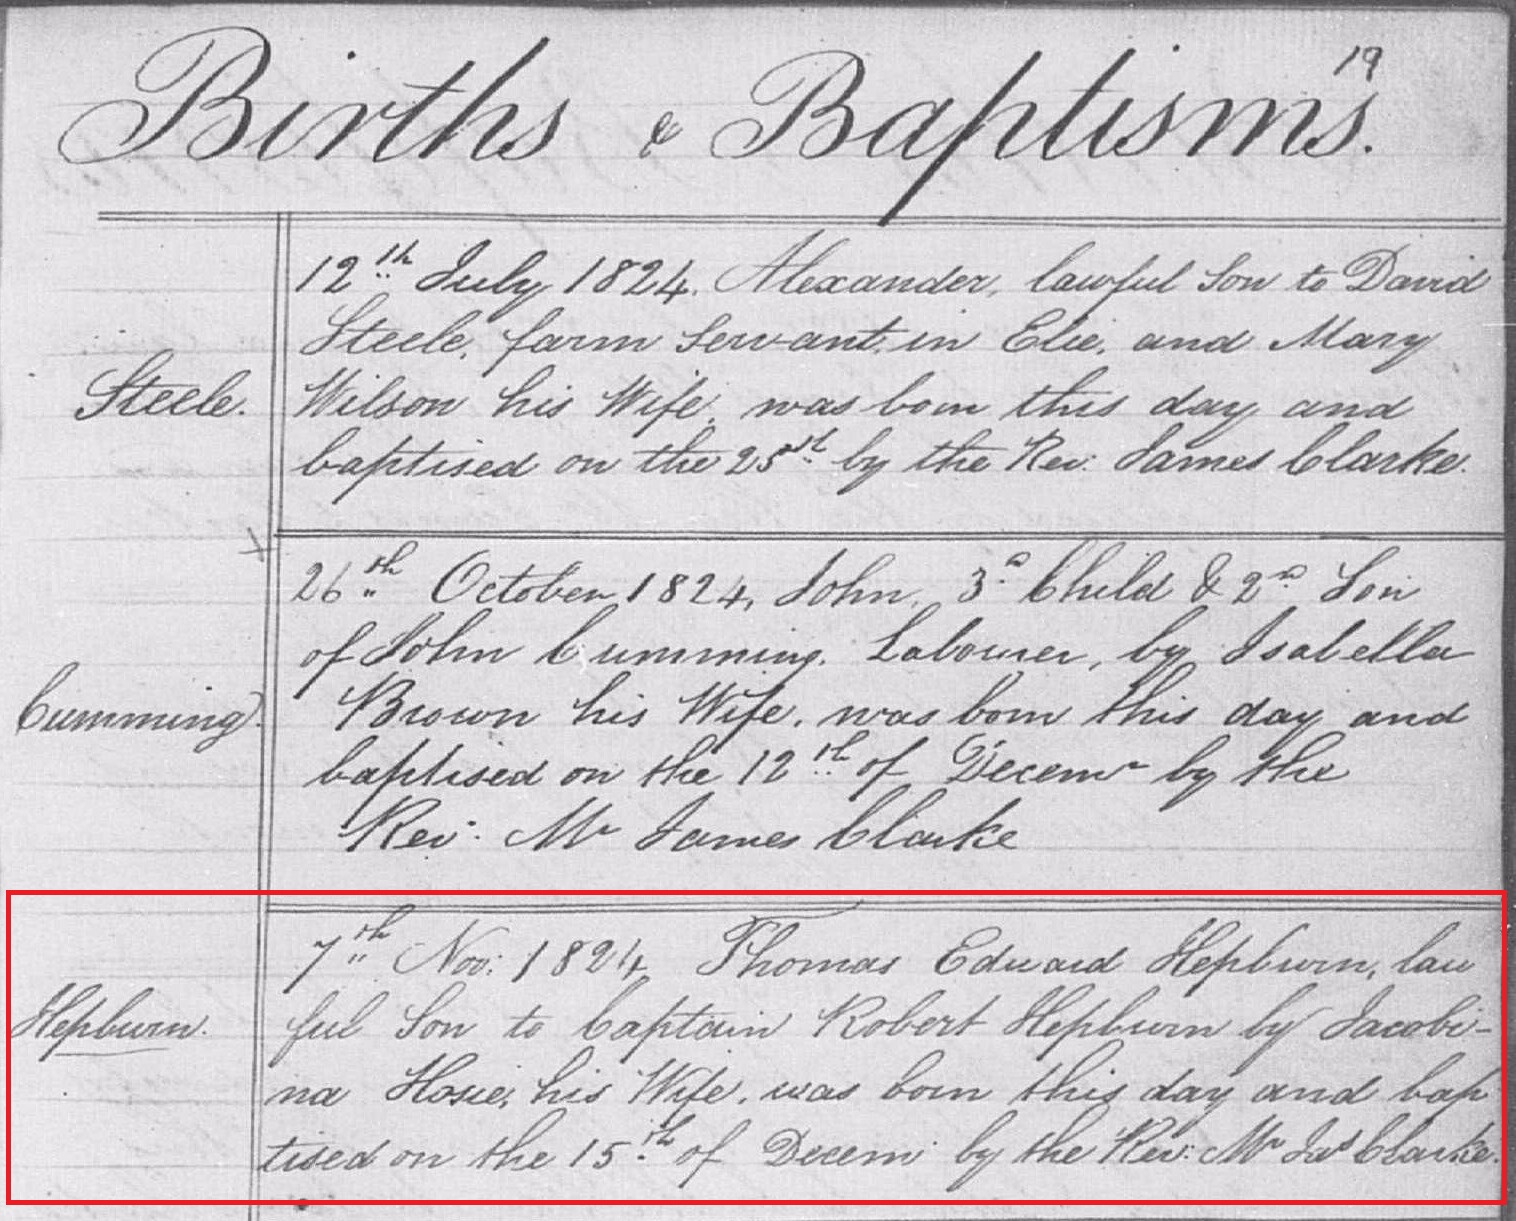 19
Births & Baptisms.
12th July 1824. Alexander, lawful Son to David
Steele, farm Servant, in Elie, and Mary
Steele.
Wilson his Wife, was born this day and
baptised on the 25th by the Rev: James Clarke.
26th October 1824, John, 3d Child & 2d Son
of John Cumming, Labourer, by Isabella
Cumming.
Brown his Wife, was born this day and
baptised on the 12th of Decemr by the
Rev: Mr James Clarke
7th Nov: 1824, Thomas Edward Hepburn, law
Hepburn.
ful Son to Captain Robert Hepburn by Jacobi-
na Hosie, his Wife, was born this day and bap
tised on the 15th of Decem by the Rev: Mr Jas Clarke.